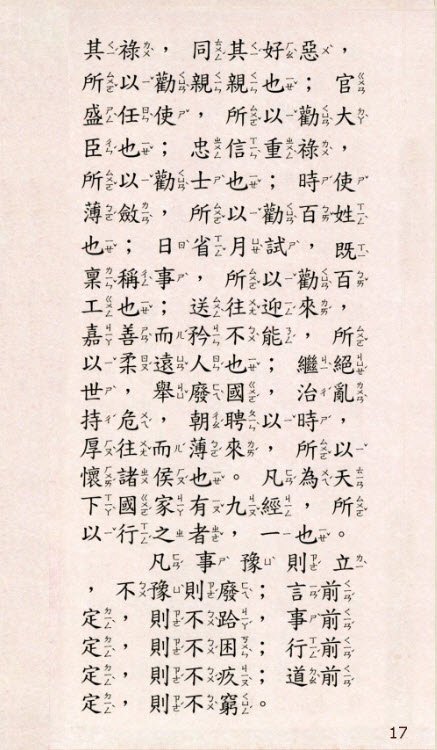 其祿，同其好惡，
所以勸親親也；官
盛任使，所以勸大
臣也；忠信重祿，
所以勸士也；時使
薄斂，所以勸百姓
也；日省月試，既
稟稱事，所以勸百
工也；送往迎來，
嘉善而矜不能，所
以柔遠人也；繼絕
世，舉廢國，治亂
持危，朝聘以時，
厚往而薄來，所以
懷諸侯也。凡為天
下國家有九經，所
以行之者，一也。
凡事豫則立
，不豫則廢；言前
定，則不跲，事前
定，則不困；行前
定，則不疚；道前
定，則不窮。
17